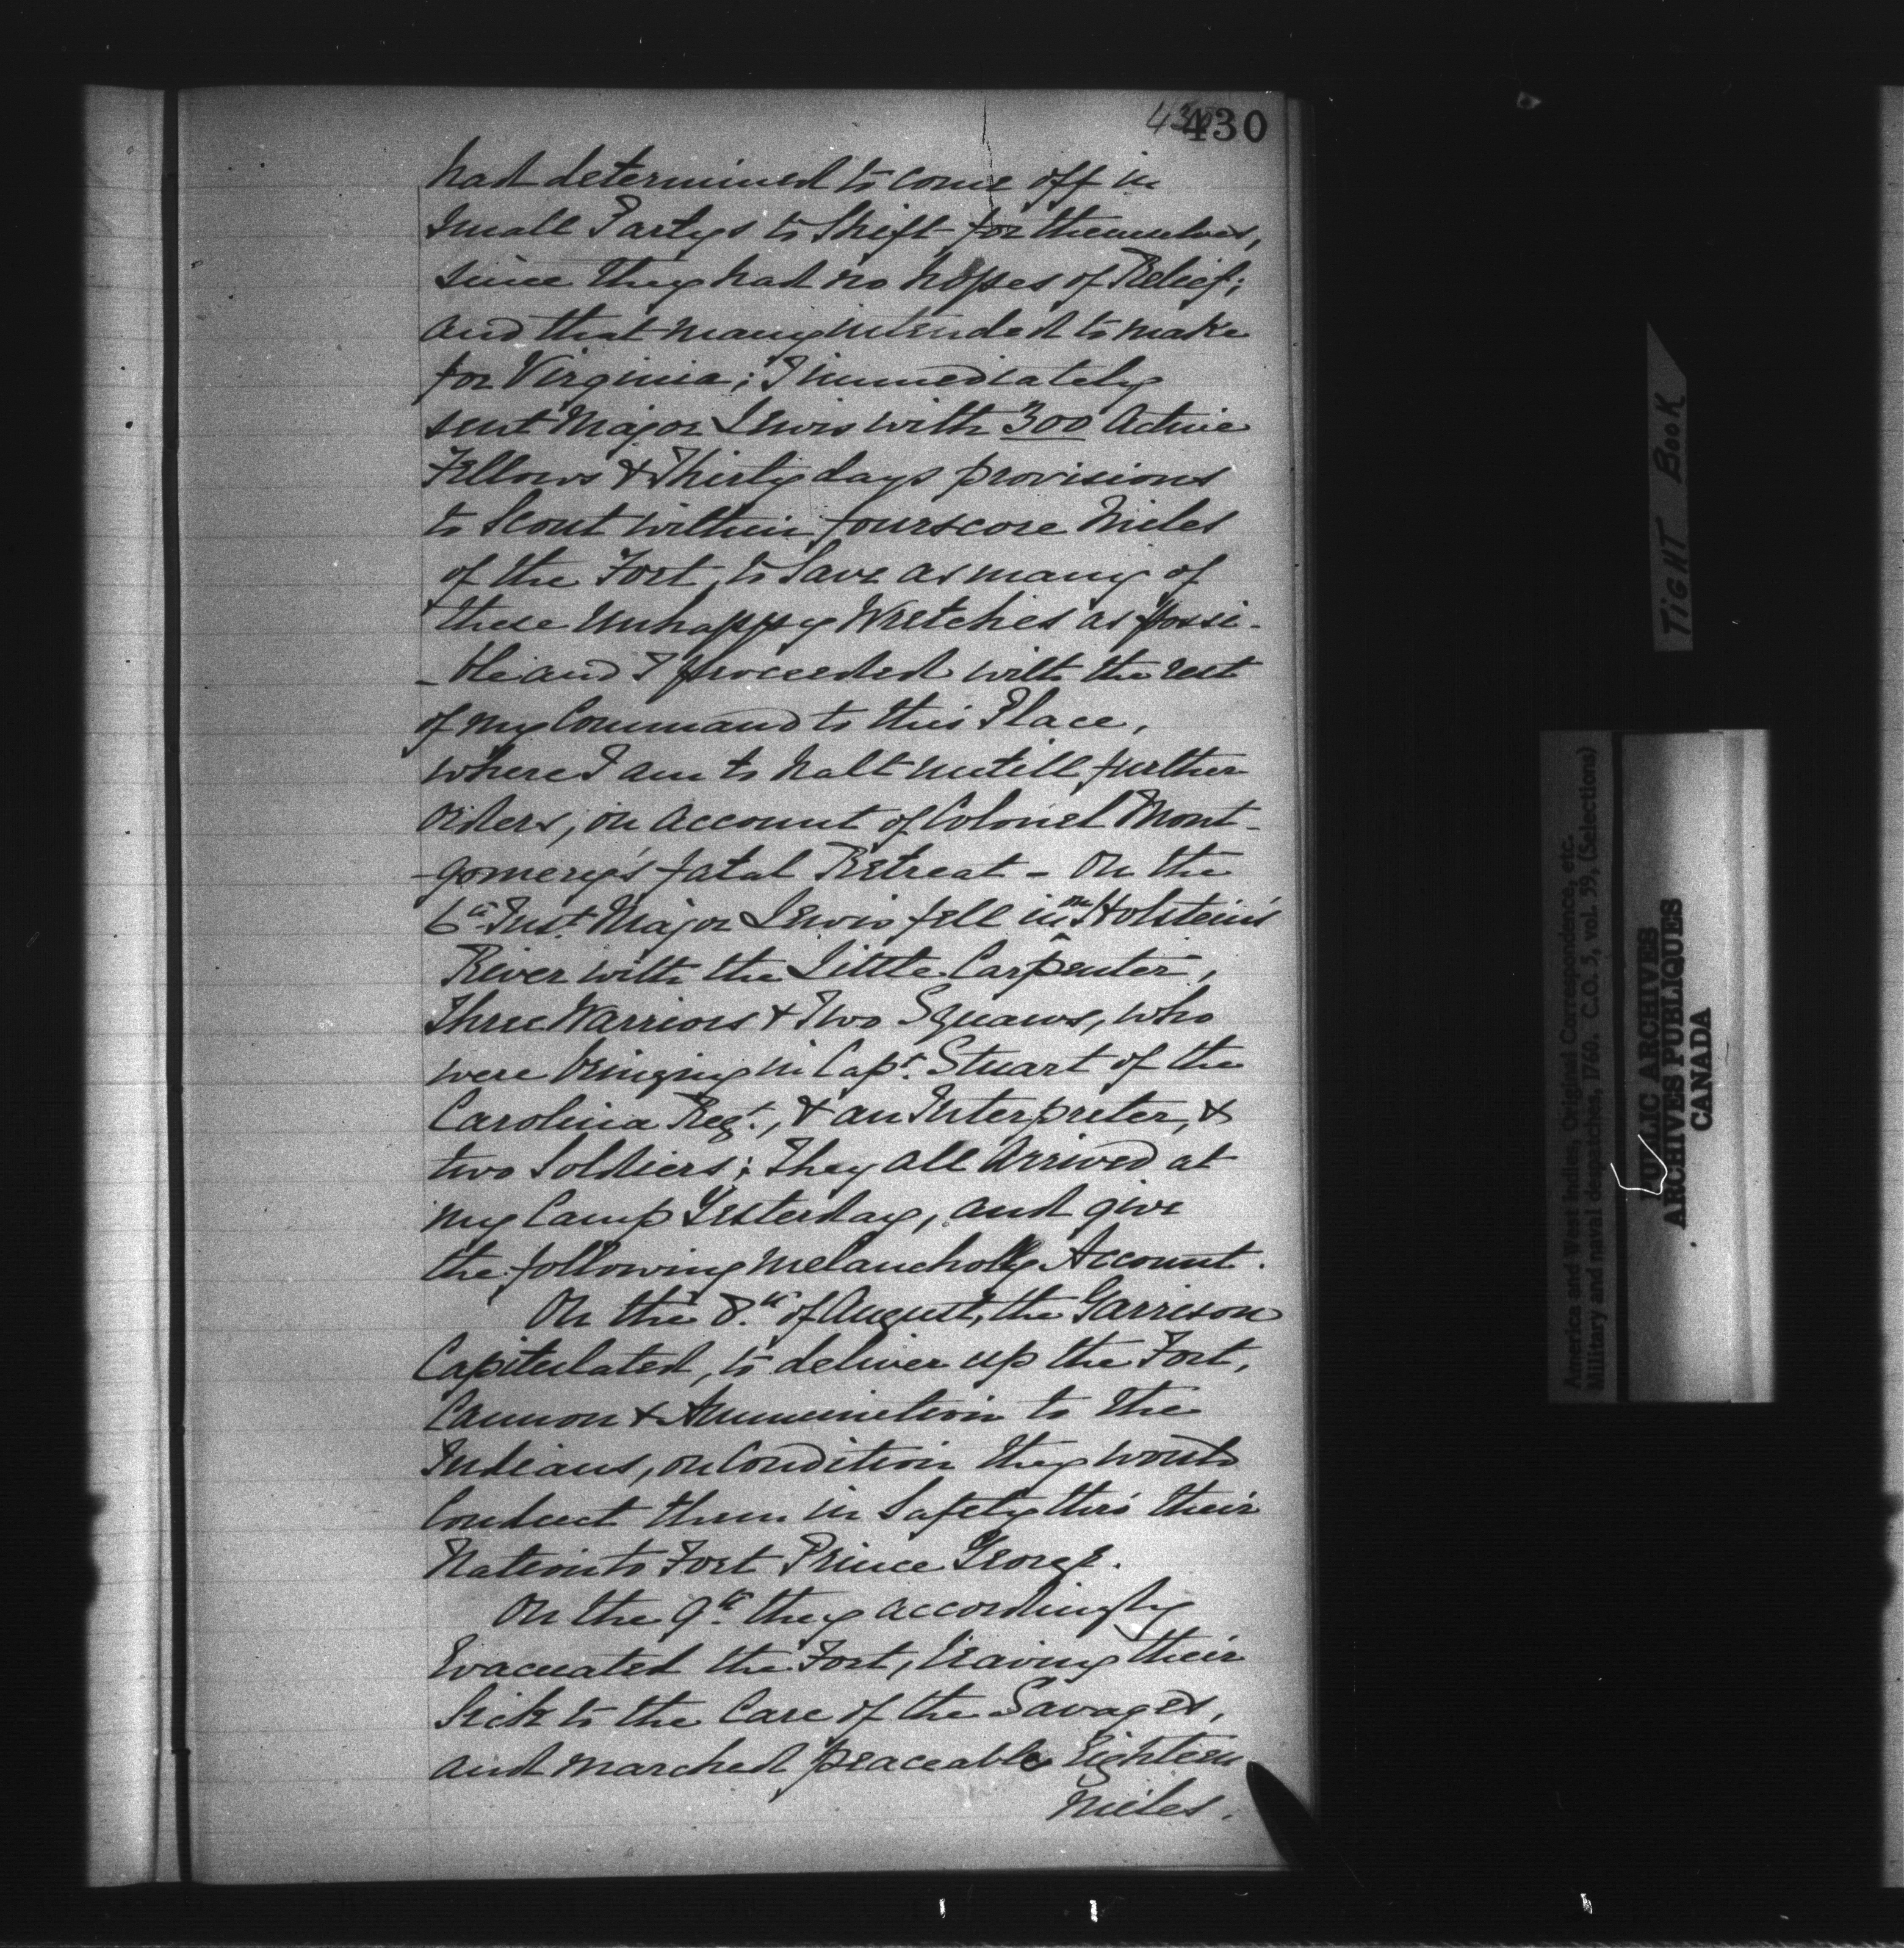 430
had determined to come off in
Small Partys to Shift for themselves,
since they had no hopes of Relief;
and that many intended to make
for Virginia; I immediately
sent Major Lewis with 300 Active
Fellows & Thirty days provisions
to Scout within fourscore Miles
of the Fort, to Save as many of
these unhappy Wretches as possi-
-ble and I proceeded with the rest
of my Command to this Place,
where I am to halt untill further
Orders, on account of Colonel Mont-
-gomery's fatal Retreat - On the
6th Inst. Major Lewis fell in on Holstein's
River with the Little Carpenter,
Three Warriors & Two Squaws, who
were bringing in Capt. Stuart of the
Carolina Regt., & an Interpreter, &
two Soldiers; They all Arrived at
my Camp Yesterday, and give
the following melancholly Account.
On the 8th of August, the Garrison
Capitulated, to deliver up the Fort,
Cannon & Ammunition to the
Indians, on Condition they would
Conduct them in Safety thro' their
Nation to Fort Prince George.
On the 9th they accordingly
Evacuated the Fort, leaving their
Sick to the Care of the Savages,
and marched peaceable Eighteen
Miles.
TIGHT BOOK
America and West Indies, Original Correspondence, etc.
Military and naval despatches, 1760. C.O. 5, vol. 59, (Selections)
PUBLIC ARCHIVES
ARCHIVES PUBLIQUES
CANADA